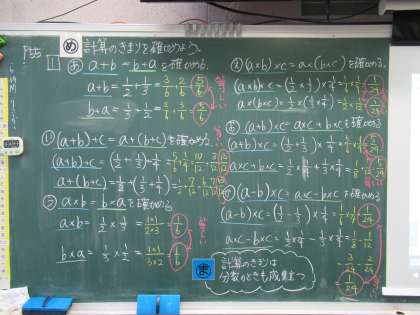 P55
め 計算のきまりを確かめよう。
1 あ a+b=b+aを確かめる。
a+b=1/2+1/3=3/6+2/6=5/6
b+a=1/3+1/2=2/6+3/6=5/6
い (a+b)+c=a+(b+c)を確かめる。
(a+b)+c=(1/2+1/3)+1/4=5/6+1/4=10/12+3/12=13/12
a+(b+c)=1/2+(1/3+1/4)=1/2+7/12=6/12+7/12=13/12
う a×b=b×aを確かめる。
a×b=1/2×1/3=1×1/2×3=1/6
b×a=1/3×1/2=1×1/3×2=1/6
え (a×b)×c=a×(b×c)を確かめる。
(a×b)×c=(1/2×1/3)×1/4=1/6×1/4=1/24
a×(b×c)=1/2×(1/3×1/4)=1/2×1/12=1/24
お (a+b)×c=a×c+b×cを確かめる。
(a+b)×c=(1/2+1/3)×1/4=5/6×1/4=5/24
a×c+b×c=1/2×1/4+1/3×1/4
か (a-b)×c=a×c-b×cを確かめる。
(a-b)×c=(1/2-1/3)×1/4=1/6×1/4=1/24
a×c-b×c=1/2×1/4-1/3×1/4=1/8-1/12
=3/24-2/24
=1/24
ま 計算のきまりは
分数のときも成り立つ